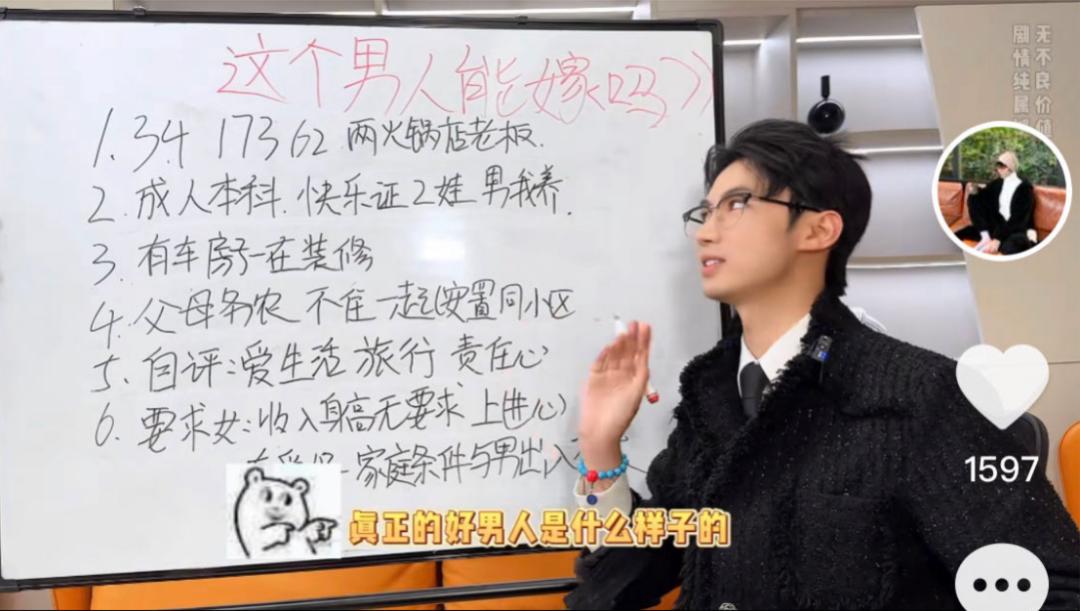 这个男人能嫁吗??
1. 34 173 62 两火锅店老板.
2. 成人本科. 快乐证 2娃 男我养.
3. 有车房子在装修
4. 父母务农 不住一起(安置同小区
5. 自评:爱生活 旅行 责任心
6. 要求女:收入身高无要求 上进心
家庭条件与男出入
真正的好男人是什么样子的
无不良价值
剧情纯属
1597